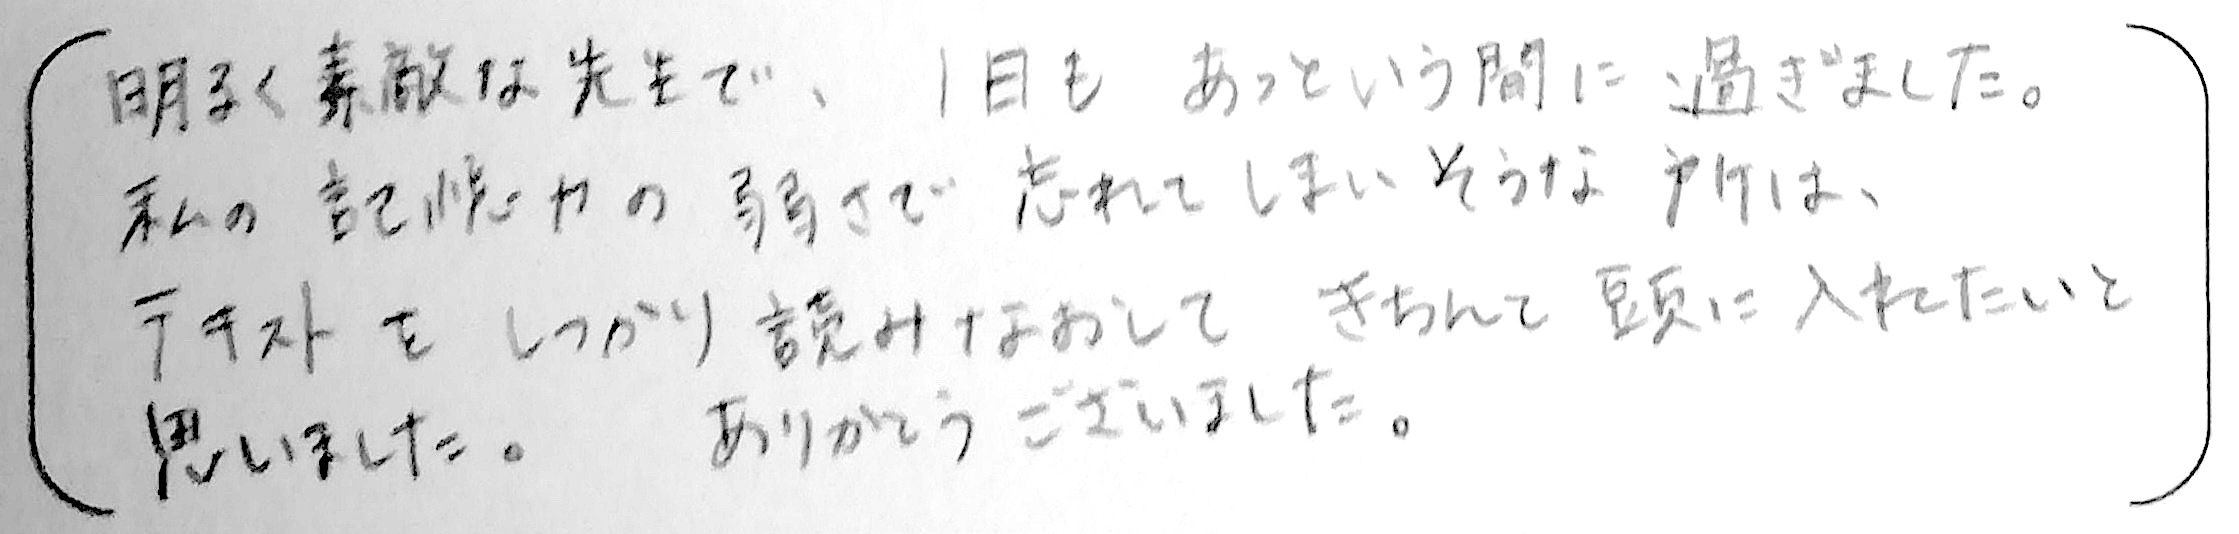 明るく素敵な先生で、1日も あっという間に過ぎました。
私の記憶力の弱さで忘れてしまいそうな所は、
テキストをしっかり読みなおして きちんと頭に入れたいと
思いました。 ありがとうございました。